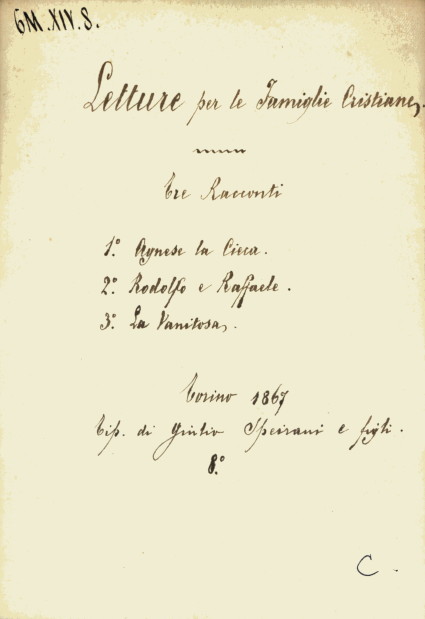 6M.XIV.8.
Letture per le Famiglie Cristiane.
Tre Racconti
1º. Agnese la Cieca.
2º. Rodolfo e Raffaele.
3º. La Vanitosa.
Torino 1867
Tip. di Giulio Speirani e figli.
8.º
C.